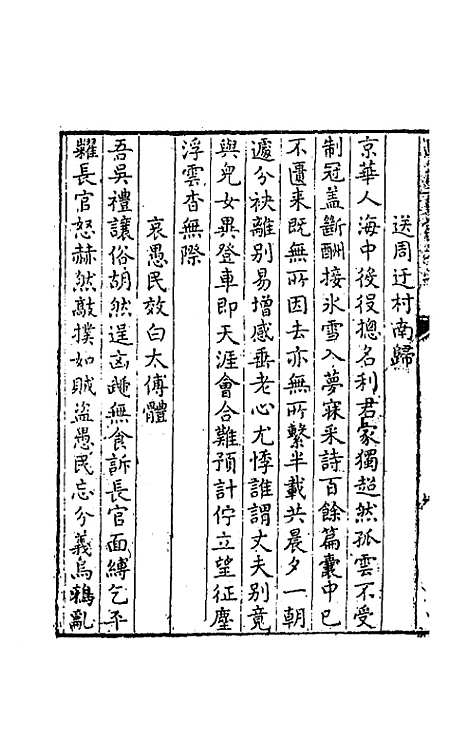 送周迂村南歸
京華人海中後役揔名利君家獨超然孤雲不受
制冠盖斷酬接氷雪入夢寐采詩百餘篇囊中已
不匱来既無所因去亦無所繫半載共晨夕一朝
遽分袂離别易增感垂老心尤悸誰謂丈夫别竟
與兒女異登車即天涯會合難預計佇立望征塵
浮雲杳無際
哀愚民效白太傅體
吾吳禮讓俗胡然逞凶
無食訴長官面縛乞平
糶長官怒赫然敲撲如賊盗愚民忘分義烏鴉亂